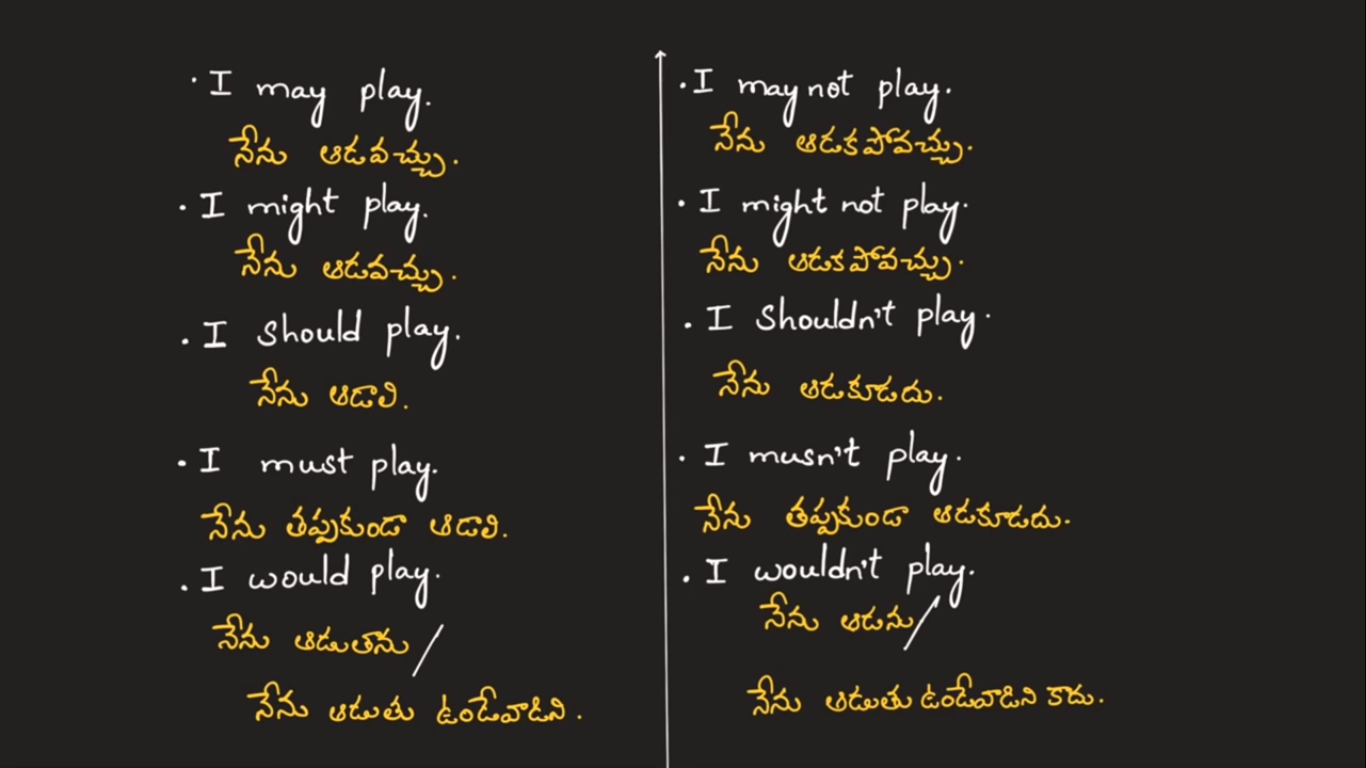 · I may play.
నేను ఆడవచ్చు.
· I might play.
నేను ఆడవచ్చు.
· I should play.
నేను ఆడాలి.
· I must play.
నేను తప్పకుండా ఆడాలి.
· I would play.
నేను ఆడుతాను/
నేను ఆడుతు ఉండేవాడిని.
· I may not play.
నేను ఆడకపోవచ్చు.
· I might not play.
నేను ఆడకపోవచ్చు.
· I Shouldn't play.
నేను ఆడకూడదు.
· I musn't play.
నేను తప్పకుండా ఆడకూడదు.
· I wouldn't play.
నేను ఆడను/
నేను ఆడుతు ఉండేవాడిని కాదు.